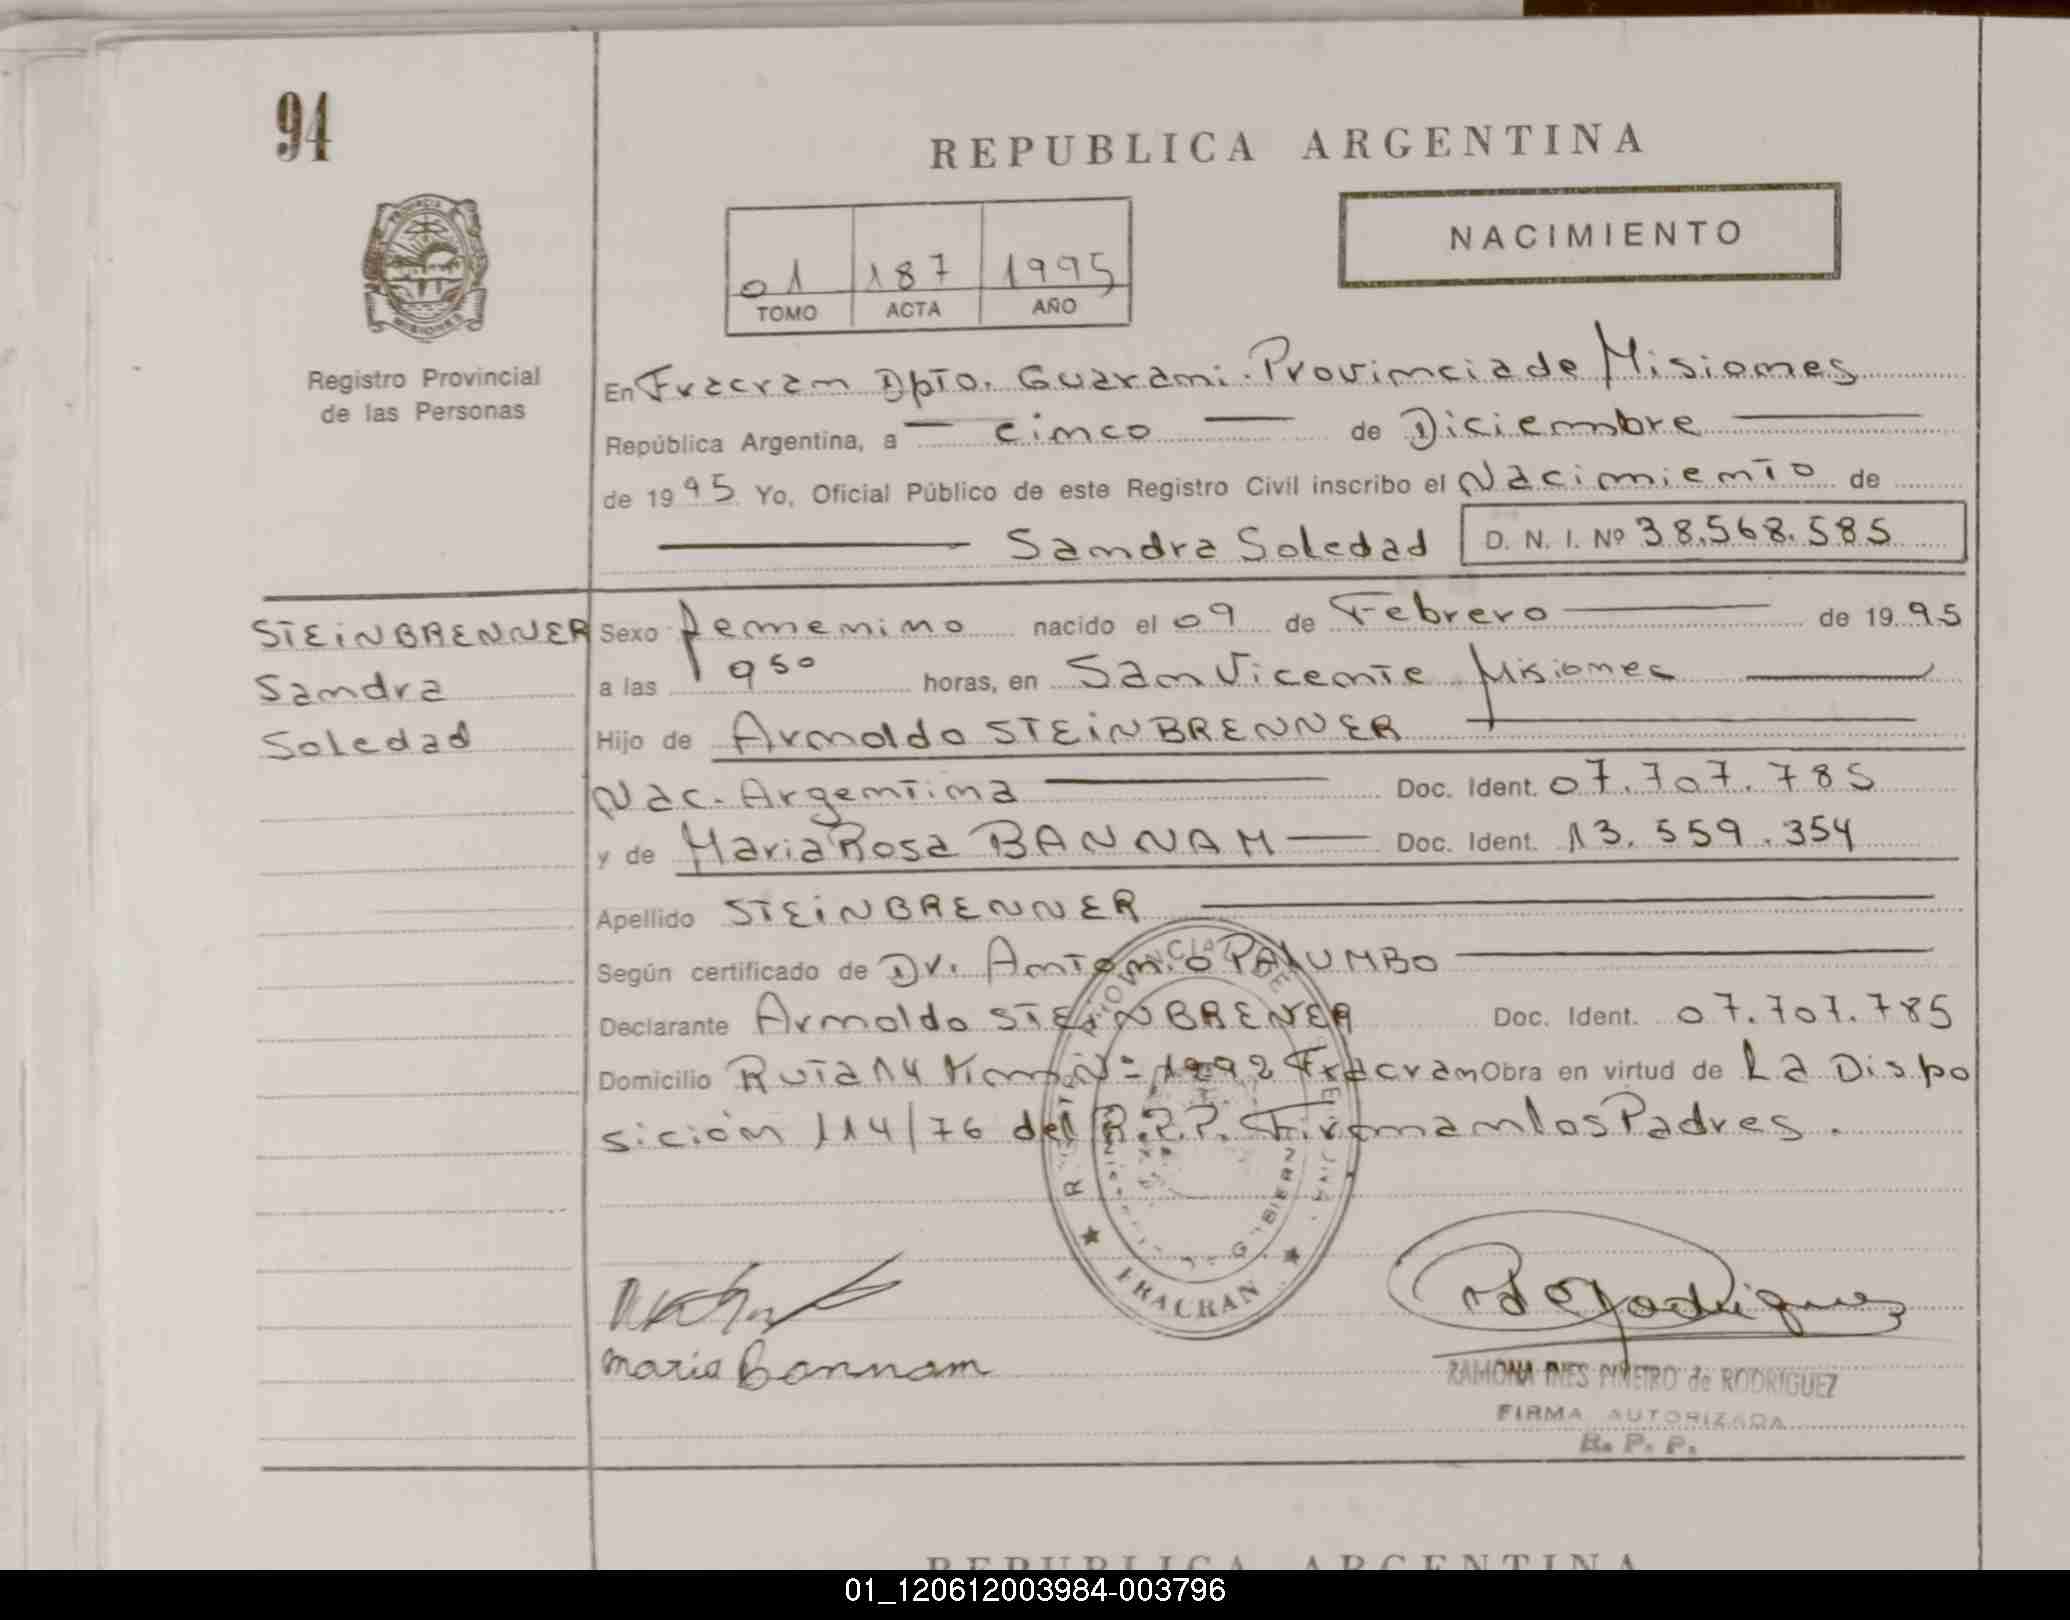 94
REPUBLICA ARGENTINA
NACIMIENTO
01 187 1995
TOMO ACTA AÑO
PROVINCIA
MISIONES
Registro Provincial
de las Personas
En Fracran Dpto. Guarani. Provincia de Misiones
República Argentina, a — cinco — de Diciembre —
de 1995 Yo, Oficial Público de este Registro Civil inscribo el Nacimiento de
— Sandra Soledad D. N. I. Nº 38.568.585
STEiNBRENNER
Sandra
Soledad
Sexo femenino nacido el 09 de Febrero — de 1995
a las 9 50 horas, en San Vicente Misiones —
Hijo de Arnoldo STEiNBRENNER —
Nac. Argentina — Doc. Ident. 07.707.785
y de Maria Rosa BANNAM — Doc. Ident. 13.559.354
Apellido STEiNBRENNER —
Según certificado de Dr. Antonio PALUMBO —
Declarante Arnoldo STEiNBRENER Doc. Ident. 07.707.785
Domicilio Ruta 14 Km Nº 1292 Fracran Obra en virtud de La Dispo
sición 114/76 del R.P.P. Firman los Padres.
PROVINCIAL DE
FRACRAN
Maria Bannam
Rodriguez
RAMONA INES PIÑEIRO de RODRIGUEZ
FIRMA AUTORIZADA
R. P. P.
REPUBLICA ARGENTINA
01_120612003984-003796